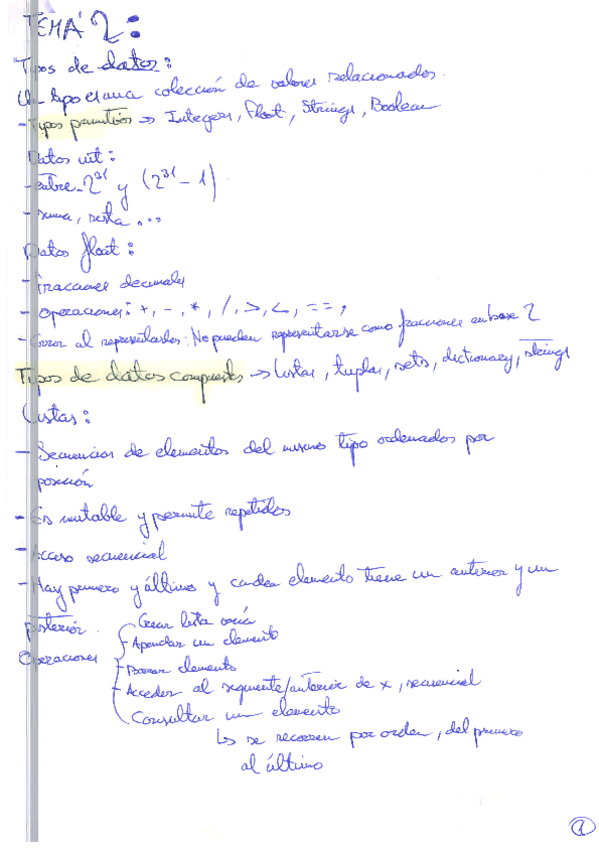 TEMA 2:
Tipos de datos:
Un tipo es una colección de valores relacionados.
- Tipos primitivos → Integers, Float, Strings, Boolean
Datos int:
- entre -2^31 y (2^31 - 1)
- suma, resta, ...
Datos float:
- Fracciones decimales
- Operaciones: +, -, *, /, >, <, ==,
- Error al representarlos: No pueden representarse como fracciones en base 2
Tipos de datos compuestos → Listas, tuplas, sets, dictionary, strings
Listas:
- Secuencias de elementos del mismo tipo ordenados por
posición
- Es mutable y permite repetidos
- Acceso secuencial
- Hay primero y último y cada elemento tiene un anterior y un
posterior.
Crear lista vacía
- Apendar un elemento
Operaciones - Borrar elemento
- Acceder al siguiente/anterior de x, secuencial
Consultar un elemento
↳ se recorren por orden, del primero
al último
1